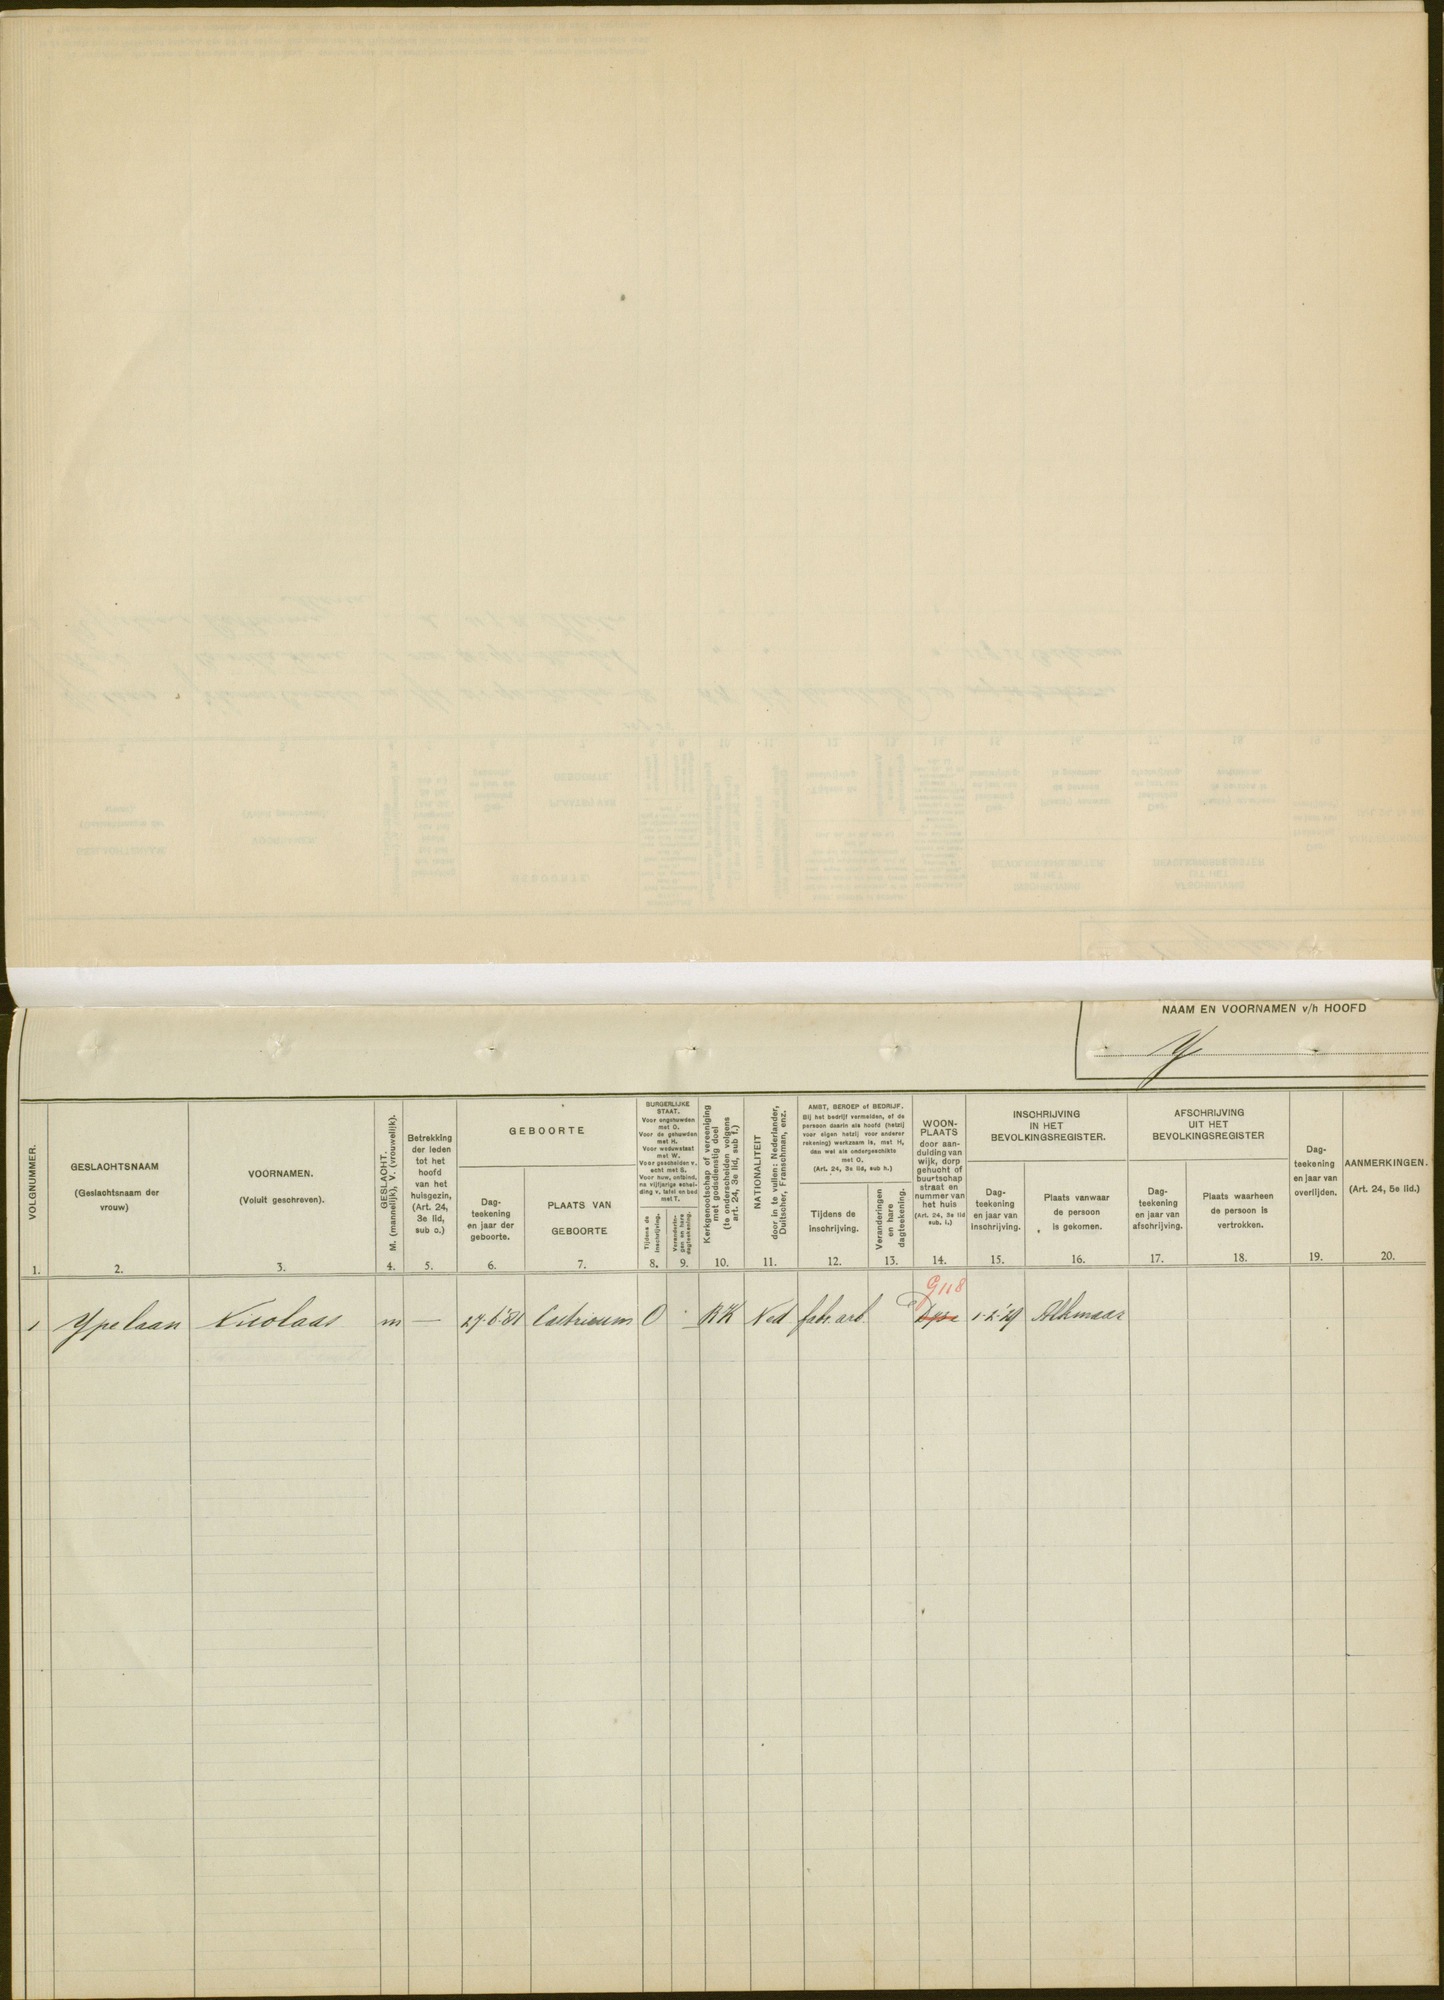 NAAM EN VOORNAMEN v/h HOOFD
Y
VOLGNUMMER.
GESLACHTSNAAM
(Geslachtsnaam der
vrouw)
VOORNAMEN.
(Voluit geschreven).
GESLACHT.
M. (mannelijk), V. (vrouwelijk).
Betrekking
der leden
tot het
hoofd
van het
huisgezin,
(Art. 24,
3e lid,
sub o.)
GEBOORTE
Dag-
teekening
en jaar der
geboorte.
PLAATS VAN
GEBOORTE
BURGERLIJKE
STAAT.
Voor ongehuwden
met O.
Voor de gehuwden
met H.
Voor weduwstaat
met W.
Voor gescheiden v.
echt met S.
Voor huw. ontbind.
na vijfjarige schei-
ding v. tafel en bed
met T.
Tijdens de
inschrijving.
Veranderin-
gen en hare
dagteekening.
Kerkgenootschap of vereeniging
met godsdienstig doel
(te onderscheiden volgens
art. 24, 3e lid, sub f.)
NATIONALITEIT
door in te vullen: Nederlander,
Duitscher, Franschman, enz.
AMBT, BEROEP of BEDRIJF.
Bij het bedrijf vermelden, of de
persoon daarin als hoofd (hetzij
voor eigen hetzij voor anderer
rekening) werkzaam is, met H,
dan wel als ondergeschikte
met O.
(Art. 24, 3e lid, sub h.)
Tijdens de
inschrijving.
Veranderingen
en hare
dagteekening.
WOON-
PLAATS
door aan-
duiding van
wijk, dorp
gehucht of
buurtschap
straat en
nummer van
het huis
(Art. 24, 3e lid
sub. i.)
INSCHRIJVING
IN HET
BEVOLKINGSREGISTER.
Dag-
teekening
en jaar van
inschrijving.
Plaats vanwaar
de persoon
is gekomen.
AFSCHRIJVING
UIT HET
BEVOLKINGSREGISTER
Dag-
teekening
en jaar van
afschrijving.
Plaats waarheen
de persoon is
vertrokken.
Dag-
teekening
en jaar van
overlijden.
AANMERKINGEN.
(Art. 24, 5e lid.)
1. 2. 3. 4. 5. 6. 7. 8. 9. 10. 11. 12. 13. 14. 15. 16. 17. 18. 19. 20.
G 118
1 Ypelaan Nicolaas m — 27.6.'81 Castricum O RK Ned fabr. arb. 1-2-'29 Alkmaar